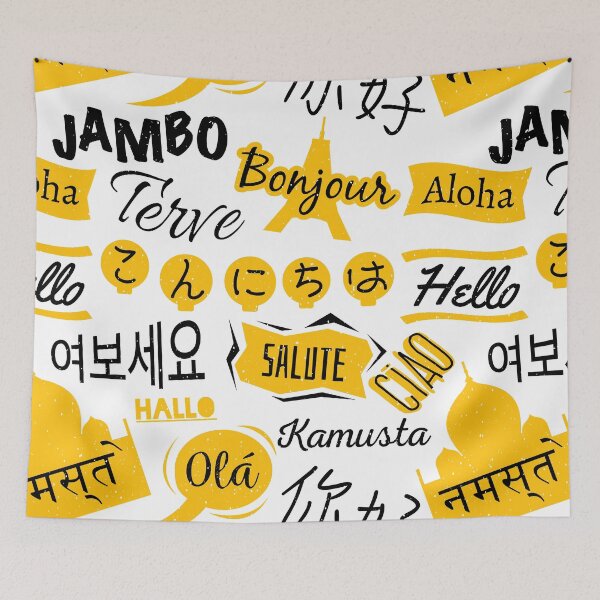 你好
JAMBO
JAM
Bonjour
oha
Aloha
Terve
こんにちは
こ
llo
Hello
여보세요
여보
SALUTE
CIAO
HALLO
Kamusta
Olá
你好
मस्ते
नमस्ते